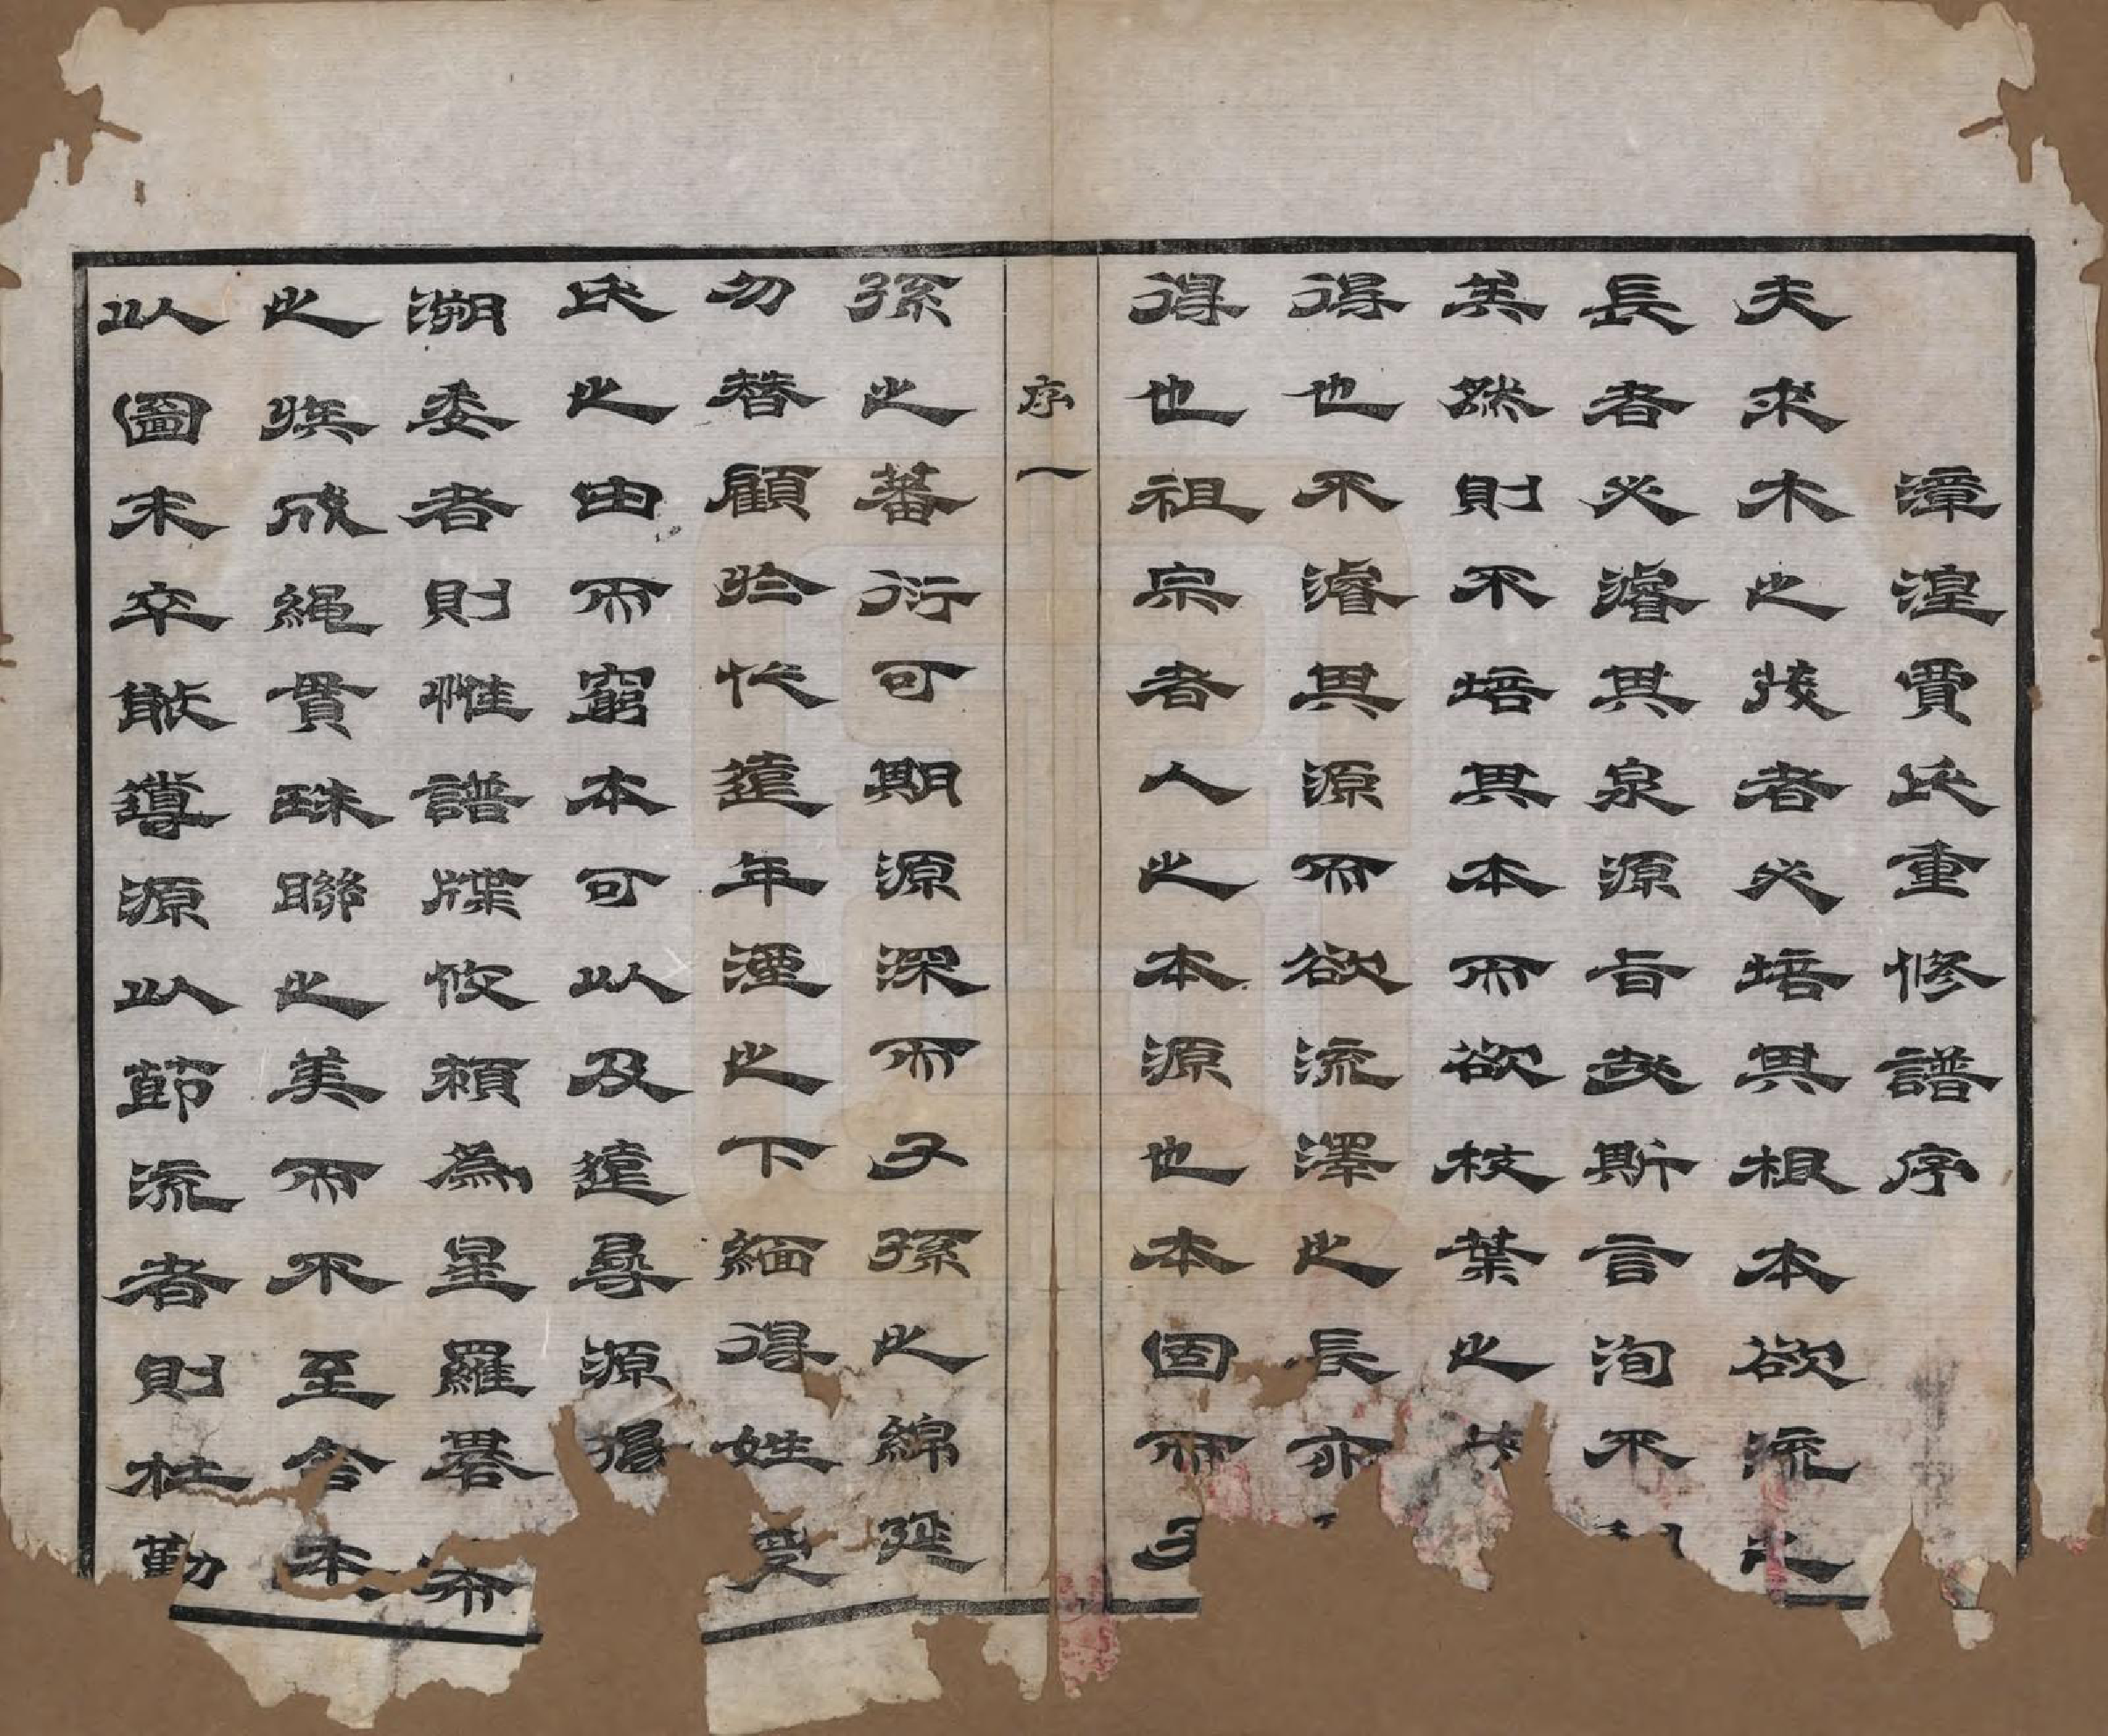 漳湟賈氏重修譜序
夫求木之茂者必培其根本欲流之
長者必濬其泉源旨哉斯言洵不
美然則不培其本而欲枝葉之茂
得也不濬其源而欲流澤之長亦
得也祖宗者人之本源也本固而子
序一
孫之蕃衍可期源深而子孫之綿延
勿替顧於代遠年湮之下緬得姓受
氏之由而窮本可以及遠尋源
溯委者則惟譜牒攸賴為星羅碁布
之族成繩貫珠聯之美而不至舍本
以圖末卒猷導源以節流者則杜勤